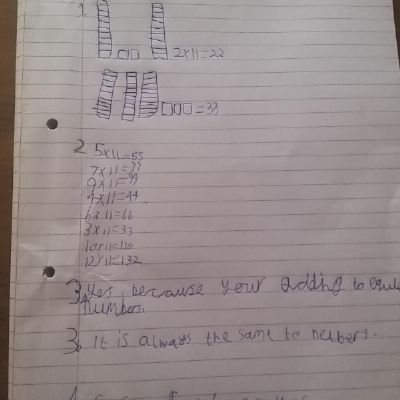 1
2x11=22
=33
2 5x11=55
7x11=77
9x11=99
4x11=44
6x11=66
3x11=33
10x11=110
12x11=132
3. Yes, because your adding to
numbers.
3. It is always the same to